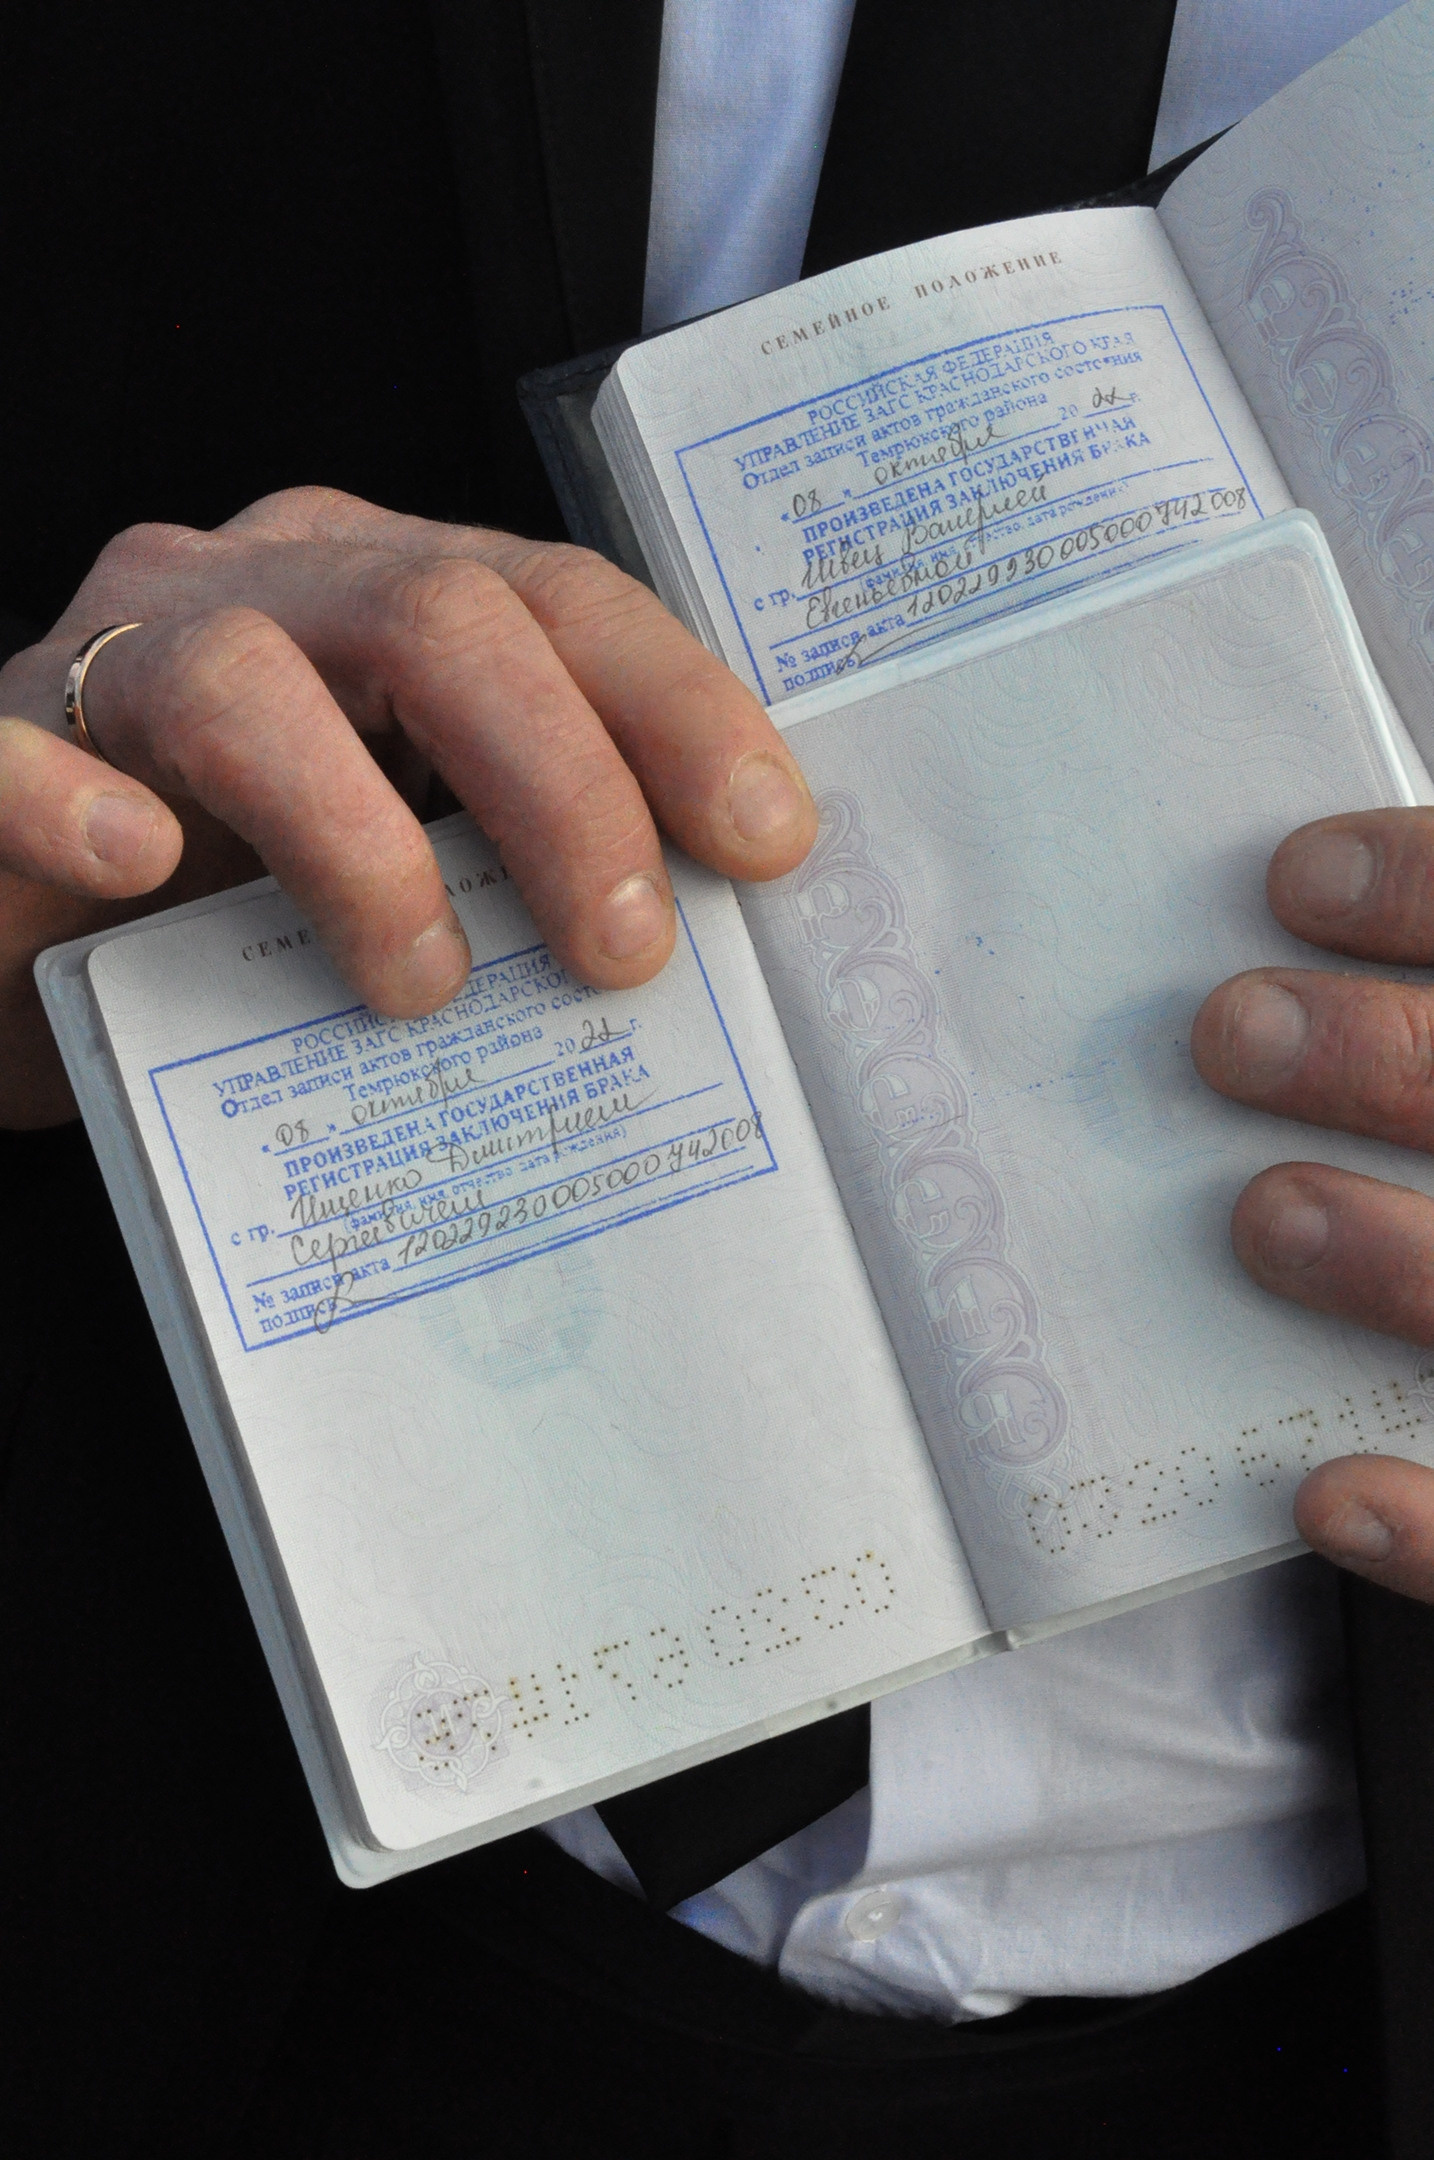 СЕМЕЙНОЕ ПОЛОЖЕНИЕ
РОССИЙСКАЯ ФЕДЕРАЦИЯ
УПРАВЛЕНИЕ ЗАГС КРАСНОДАРСКОГО КРАЯ
Отдел записи актов гражданского состояния
Темрюкского района
« 08 » октября 2022 г.
ПРОИЗВЕДЕНА ГОСУДАРСТВЕННАЯ
РЕГИСТРАЦИЯ ЗАКЛЮЧЕНИЯ БРАКА
с гр. Швец Валерией
(фамилия, имя, отчество, дата рождения)
Евгеньевной
№ записи акта 120229230005000742008
подпись
СЕМЕ ЛОЖЕ
РОССИЙС ЕДЕРАЦИЯ
УПРАВЛЕНИЕ ЗАГС КРАСНОДАРСКОГ
Отдел записи актов гражданского состо
Темрюкского района
« 08 » октября 2022 г.
ПРОИЗВЕДЕНА ГОСУДАРСТВЕННАЯ
РЕГИСТРАЦИЯ ЗАКЛЮЧЕНИЯ БРАКА
с гр. Ищенко Дмитрием
(фамилия, имя, отчество, дата рождения)
Сергеевичем
№ записи акта 120229230005000742008
подпись